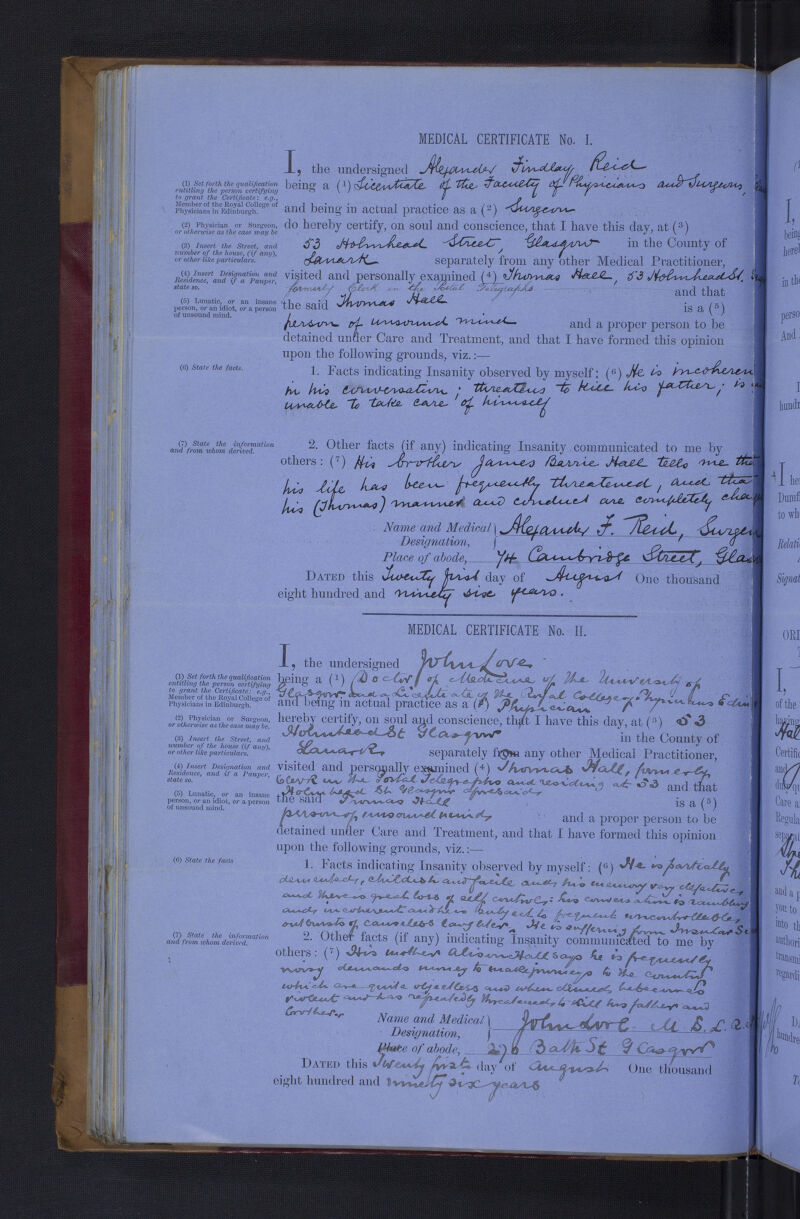 MEDICAL CERTIFICATE No. I.
I, the undersigned Alexander Findlay Reid
(1) Set forth the qualification entitling the person certifying to grant the Certificate: e.g., Member of the Royal College of Physicians in Edinburgh.
being a (1) Licentiate of the Faculty of Physicians and Surgeons,
and being in actual practice as a (2) Surgeon
(2) Physician or Surgeon, or otherwise as the case may be
do hereby certify, on soul and conscience, that I have this day, at (3)
(3) Insert the Street, and number of the house, (if any), or other like particulars.
53 Holmhead Street, Glasgow in the County of
Lanark separately from any other Medical Practitioner,
(4) Insert Designation and Residence, and if a Pauper, state so.
visited and personally examined (4) Thomas Hall, 53 Holmhead St.
formerly Clerk in the Postal Telegraphs and that
(5) Lunatic, or an insane person, or an idiot, or a person of unsound mind.
the said Thomas Hall is a (5)
person of unsound mind and a proper person to be
detained under Care and Treatment, and that I have formed this opinion
upon the following grounds, viz.:—
(6) State the facts.
1. Facts indicating Insanity observed by myself: (6) He is incoheren
in his conversation; threatens to kill his father; is
unable to take care of himself
(7) State the information and from whom derived.
2. Other facts (if any) indicating Insanity communicated to me by
others: (7) His brother James Barrie Hall tells me tha
his life has been frequently threatened, and tha
his (Thomas) manner and conduct are completely cha
Name and Medical Designation, Alexander F. Reid, Surgeon
Place of abode, 74 Cambridge Street, Glas
DATED this Twenty first day of August One thousand
eight hundred and ninety six years.
MEDICAL CERTIFICATE No. II.
I, the undersigned John Love
(1) Set forth the qualification entitling the person certifying to grant the Certificate: e.g., Member of the Royal College of Physicians in Edinburgh.
being a (1) Doctor of Medicine of the University of
Glasgow and a Licentiate of the Royal College of Physicians Edin
and being in actual practice as a (2) Physician
(2) Physician or Surgeon, or otherwise as the case may be.
hereby certify, on soul and conscience, that I have this day, at (3) 53
(3) Insert the Street, and number of the house (if any), or other like particulars.
Holmhead St Glasgow in the County of
Lanark separately from any other Medical Practitioner,
(4) Insert Designation and Residence, and if a Pauper, state so.
visited and personally examined (4) Thomas Hall, formerly
Clerk in the Postal Telegraphs and residing at 53 and that
Holmhead St. Glasgow aforesaid
(5) Lunatic, or an insane person, or an idiot, or a person of unsound mind.
the said Thomas Hall is a (5)
person of unsound mind and a proper person to be
detained under Care and Treatment, and that I have formed this opinion
upon the following grounds, viz.:—
(6) State the facts
1. Facts indicating Insanity observed by myself: (6) He is partially
demented, childish and facile and his memory very defective
and there is great loss of self control: his conversation is rambling
and incoherent and he is subject to frequent uncontrollable
outbursts of causeless laughter. He is suffering from Insular Sc
(7) State the information and from whom derived.
2. Other facts (if any) indicating Insanity communicated to me by
others: (7) His mother Alison Hall says he is frequently
noisy demands money to make journeys to the country
which are quite objectless and when denied, becomes
violent and has repeatedly threatened to kill his father and
brother.
Name and Medical Designation, John Love M D. L. R.
Place of abode, 276 Bath St Glasgow
DATED this Twenty first day of August One thousand
eight hundred and ninety six years